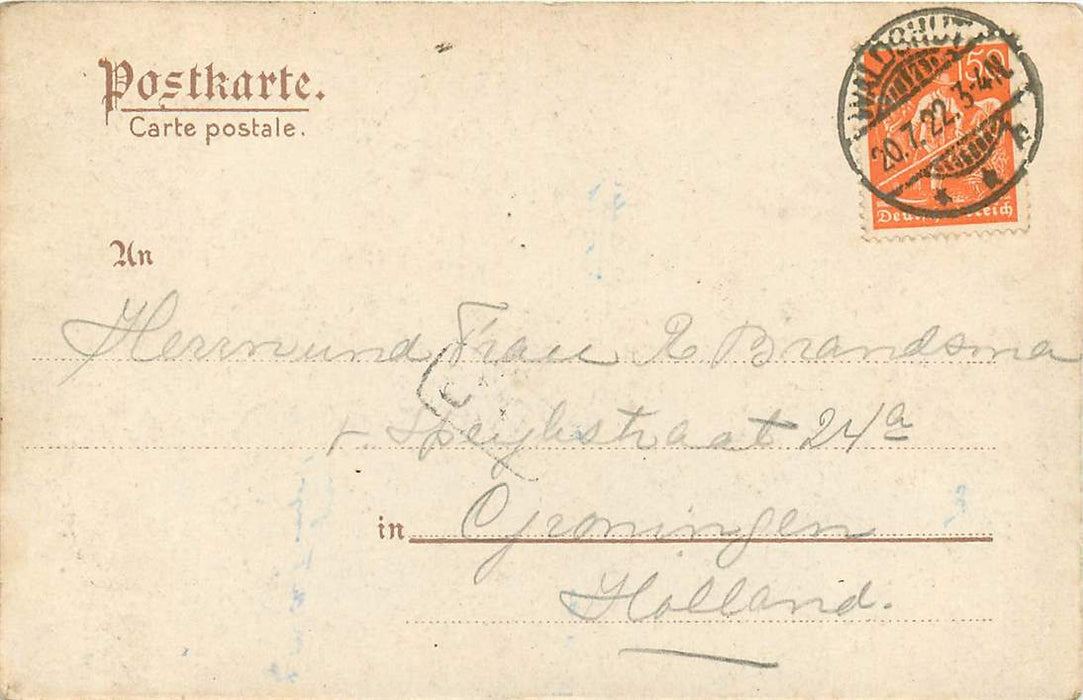 Postkarte.
Carte postale.
WALDSHUT
20.7.22. 3-4N.
150
Deutsches Reich
An
Herrn und Frau R Brandsma
straat 24a
in Groningen
Holland.